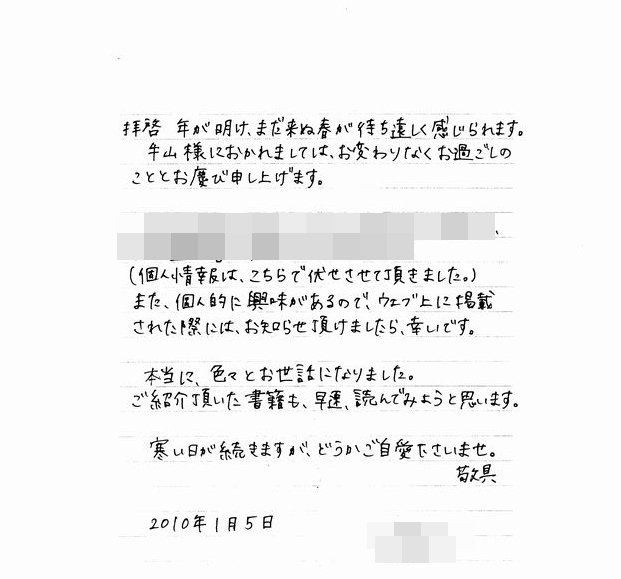 拝啓 年が明け、まだ来ぬ春が待ち遠しく感じられます。
牛山様におかれましては、お変わりなくお過ごしの
こととお慶び申し上げます。
(個人情報は、こちらで伏せさせて頂きました。)
また、個人的に興味があるので、ウェブ上に掲載
された際には、お知らせ頂けましたら、幸いです。
本当に、色々とお世話になりました。
ご紹介頂いた書籍も、早速、読んでみようと思います。
寒い日が続きますが、どうかご自愛下さいませ。
敬具
2010年1月5日